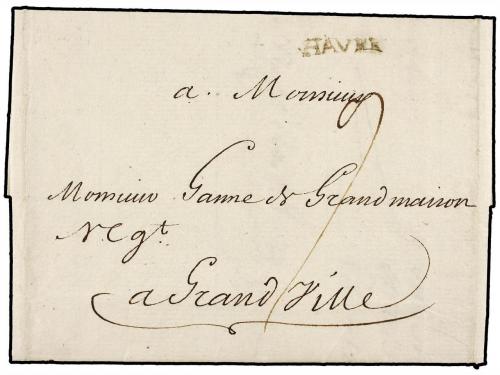 HAVRE
a Monsieur
Monsieur Ganne de Grandmaison
Negt.
a Grand Ville